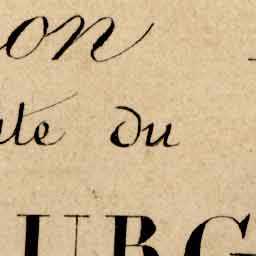 on
te du
URG